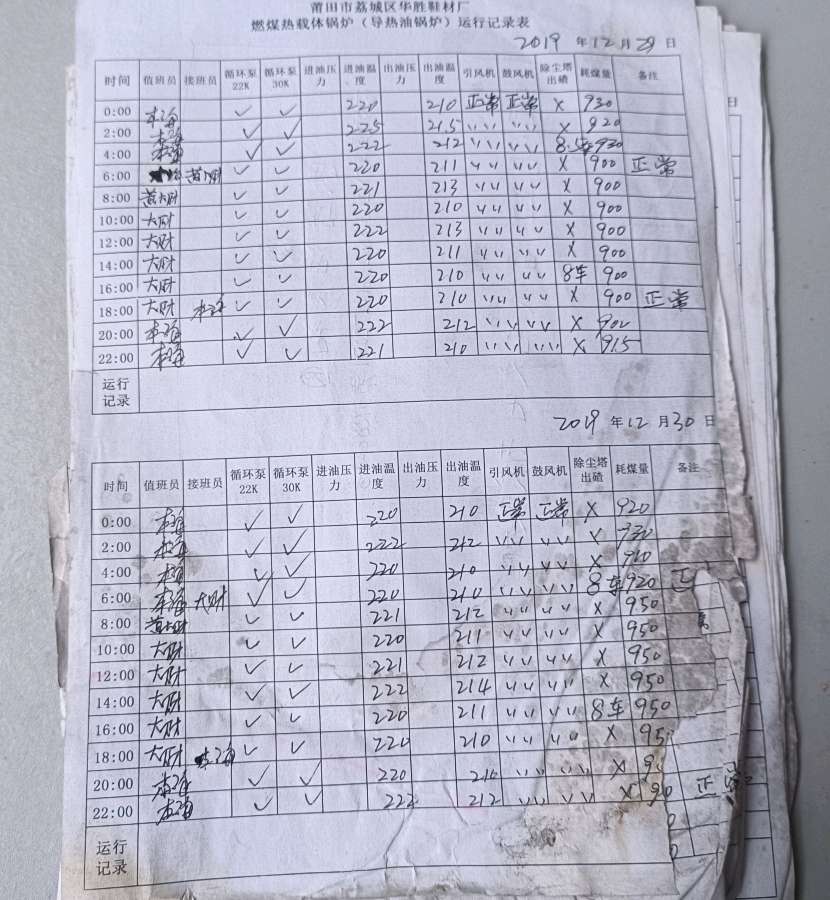 莆田市荔城区华胜鞋材厂
燃煤热载体锅炉(导热油锅炉)运行记录表
2019 年 12 月 29 日
时间 值班员 接班员 循环泵22K 循环泵30K 进油压力 进油温度 出油压力 出油温度 引风机 鼓风机 除尘塔出碴 耗煤量 备注
0:00 ✓ ✓ 220 210 正常 正常 × 930
2:00 ✓ ✓ 225 215 〃 〃 × 920
4:00 ✓ ✓ 222 212 〃 〃 8车 930
6:00 黄大财 ✓ ✓ 220 211 〃 〃 × 900 正常
8:00 黄大财 ✓ ✓ 221 213 〃 〃 × 900
10:00 大财 ✓ ✓ 220 210 〃 〃 × 900
12:00 大财 ✓ ✓ 222 213 〃 〃 × 900
14:00 大财 ✓ ✓ 220 211 〃 〃 × 900
16:00 大财 ✓ ✓ 220 210 〃 〃 8车 900
18:00 大财 ✓ ✓ 220 210 〃 〃 × 900 正常
20:00 ✓ ✓ 222 212 〃 〃 × 902
22:00 ✓ ✓ 221 210 〃 〃 × 915
运行记录
2019 年 12 月 30 日
时间 值班员 接班员 循环泵22K 循环泵30K 进油压力 进油温度 出油压力 出油温度 引风机 鼓风机 除尘塔出碴 耗煤量 备注
0:00 ✓ ✓ 220 210 正常 正常 × 920
2:00 ✓ ✓ 222 212 〃 〃 × 930
4:00 ✓ ✓ 220 210 〃 〃 × 910
6:00 大财 ✓ ✓ 220 210 〃 〃 8车 920
8:00 黄大财 ✓ ✓ 221 212 〃 〃 × 950
10:00 大财 ✓ ✓ 220 211 〃 〃 × 950
12:00 大财 ✓ ✓ 221 212 〃 〃 × 950
14:00 大财 ✓ ✓ 222 214 〃 〃 × 950
16:00 大财 ✓ ✓ 220 211 〃 〃 8车 950
18:00 大财 ✓ ✓ 220 210 〃 〃 × 95
20:00 ✓ ✓ 220 210 〃 〃 × 9
22:00 ✓ ✓ 222 212 〃 〃 × 90 正常
运行记录